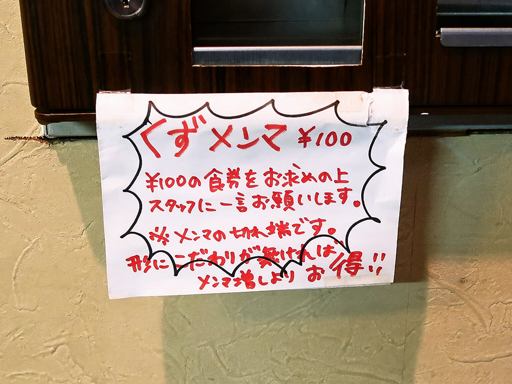 くずメンマ ¥100
¥100の食券をお求めの上
スタッフに一言お願いします。
※メンマの切れ端です。
形にこだわりが無ければ
メンマ増しよりお得!!